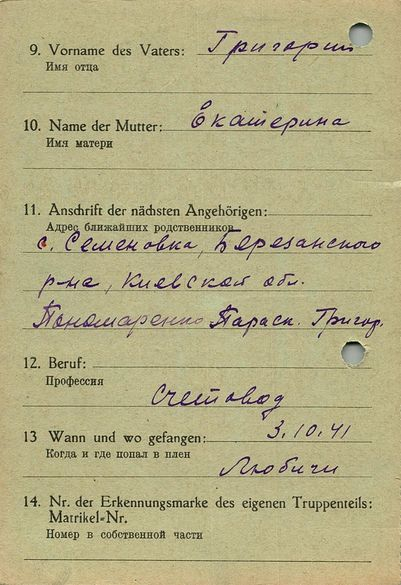 9. Vorname des Vaters: Григорий
Имя отца
10. Name der Mutter: Екатерина
Имя матери
11. Anschrift der nächsten Angehörigen:
Адрес ближайших родственников
с. Семеновка, Березанского
р-на, Киевской обл.
Пономаренко Параск. Григор.
12. Beruf:
Профессия
Счетовод
13 Wann und wo gefangen: 3.10.41
Когда и где попал в плен
Любичи
14. Nr. der Erkennungsmarke des eigenen Truppenteils:
Matrikel-Nr.
Номер в собственной части